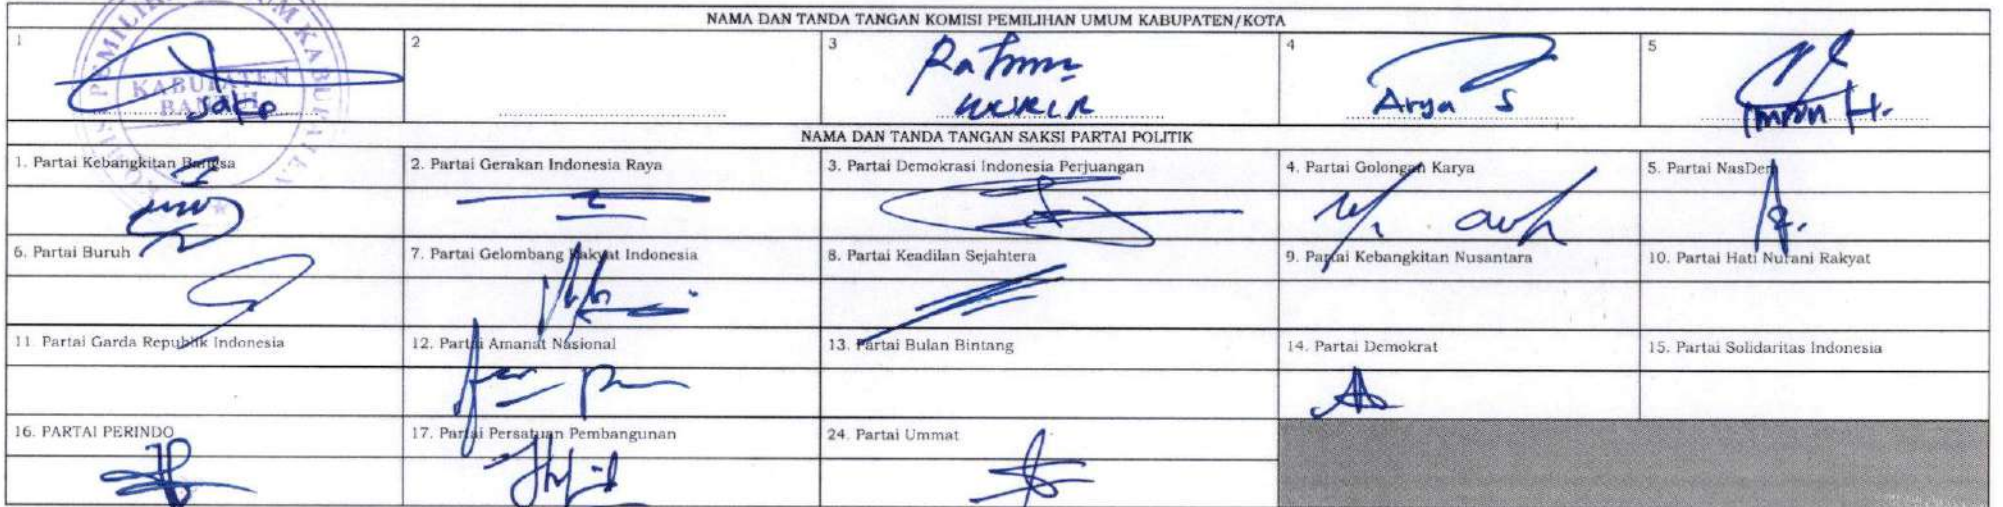 NAMA DAN TANDA TANGAN KOMISI PEMILIHAN UMUM KABUPATEN/KOTA
1 2 3 4 5
KABUPATEN
Arya S
NAMA DAN TANDA TANGAN SAKSI PARTAI POLITIK
1. Partai Kebangkitan Bangsa 2. Partai Gerakan Indonesia Raya 3. Partai Demokrasi Indonesia Perjuangan 4. Partai Golongan Karya 5. Partai NasDem
6. Partai Buruh 7. Partai Gelombang Rakyat Indonesia 8. Partai Keadilan Sejahtera 9. Partai Kebangkitan Nusantara 10. Partai Hati Nurani Rakyat
11. Partai Garda Republik Indonesia 12. Partai Amanat Nasional 13. Partai Bulan Bintang 14. Partai Demokrat 15. Partai Solidaritas Indonesia
16. PARTAI PERINDO 17. Partai Persatuan Pembangunan 24. Partai Ummat